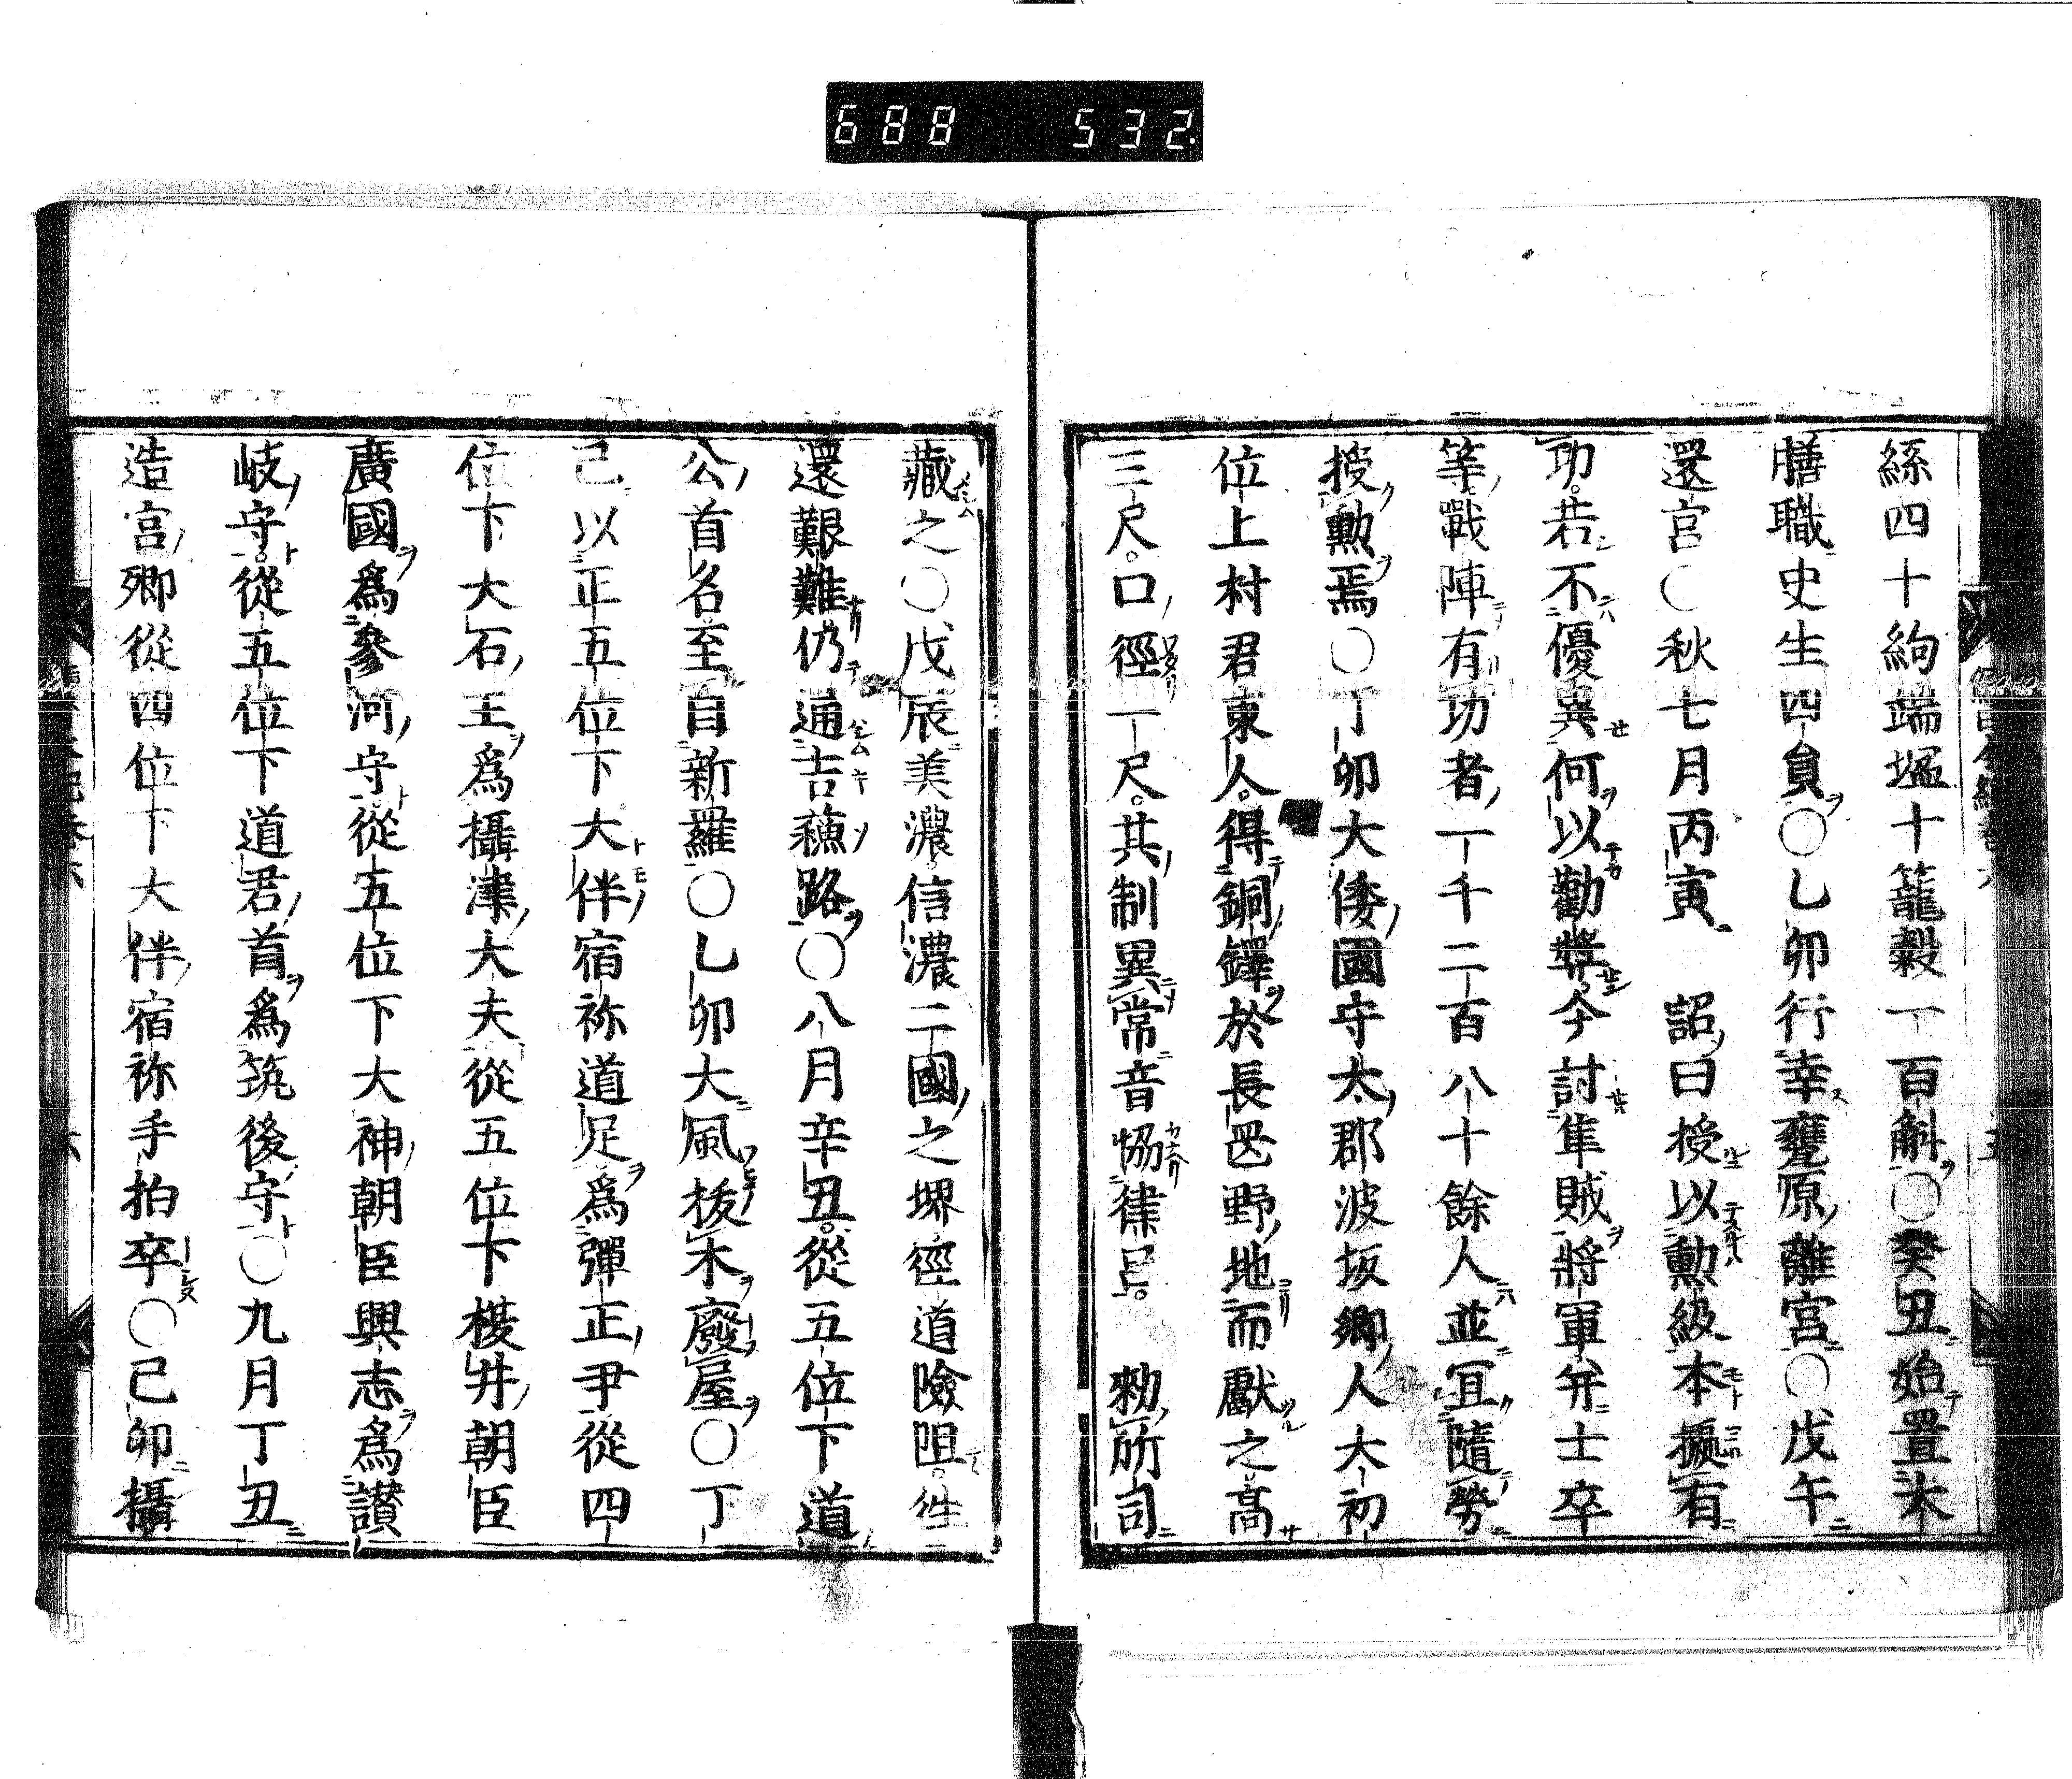 688 532.
絲四十絇端塩十籠穀一百斛○癸丑始置大
膳職史生四員○乙卯行幸甕原離宮○戊午
還宮○秋七月丙寅 詔曰授以勲級本據有
功若不優異何以勸奬今討隼賊將軍并士卒
等戰陣有功者一千二百八十餘人並冝隨勞
授勲焉○丁卯大倭國宇太郡波坂郷人大初
位上村君東人得銅鐸於長岡野地而獻之高
三尺口徑一尺其制異常音恊律呂 勑所司
藏之○戊辰美濃信濃二國之堺徑道險阻徃
還艱難仍通吉蘓路○八月辛丑從五位下道
公首名至自新羅○乙卯大風拔木廢屋○丁
已以正五位下大伴宿祢道足爲彈正尹從四
位下大石王爲攝津大夫從五位下榎井朝臣
廣國爲參河守從五位下大神朝臣興志爲讃
岐守從五位下道君首爲筑後守○九月丁丑
造宮卿從四位下大伴宿祢手拍卒○己卯攝